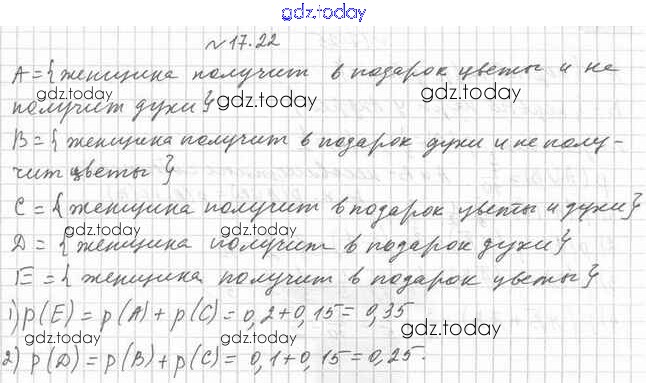 gdz.today
№17.22
A={женщина получит в подарок цветы и не
получит духи}
gdz.today gdz.today
B={женщина получит в подарок духи и не полу-
чит цветы}
C={женщина получит в подарок цветы и духи}
gdz.today gdz.today
D={женщина получит в подарок духи}
E={женщина получит в подарок цветы}
1) p(E)=p(A)+p(C)=0,2+0,15=0,35
gdz.today gdz.today
2) p(D)=p(B)+p(C)=0,1+0,15=0,25.
gdz.today